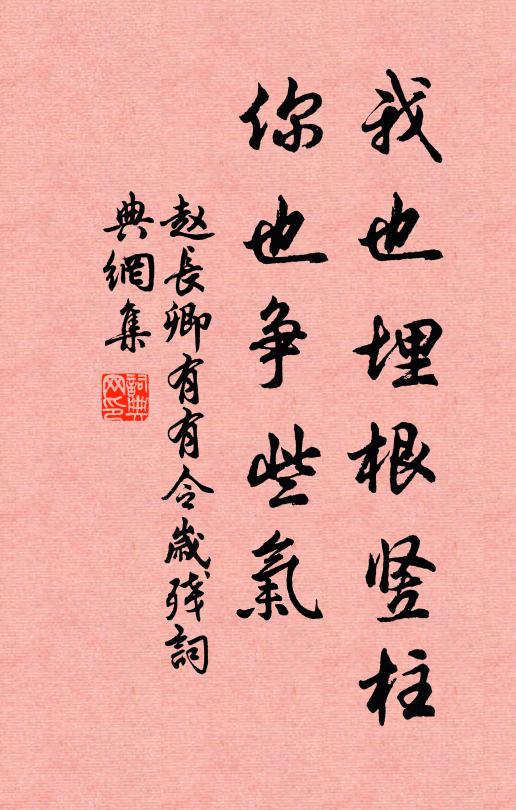 我也埋根竖柱
你也争些氣
赵長卿有有令歲残詞
典網集
詞典网印